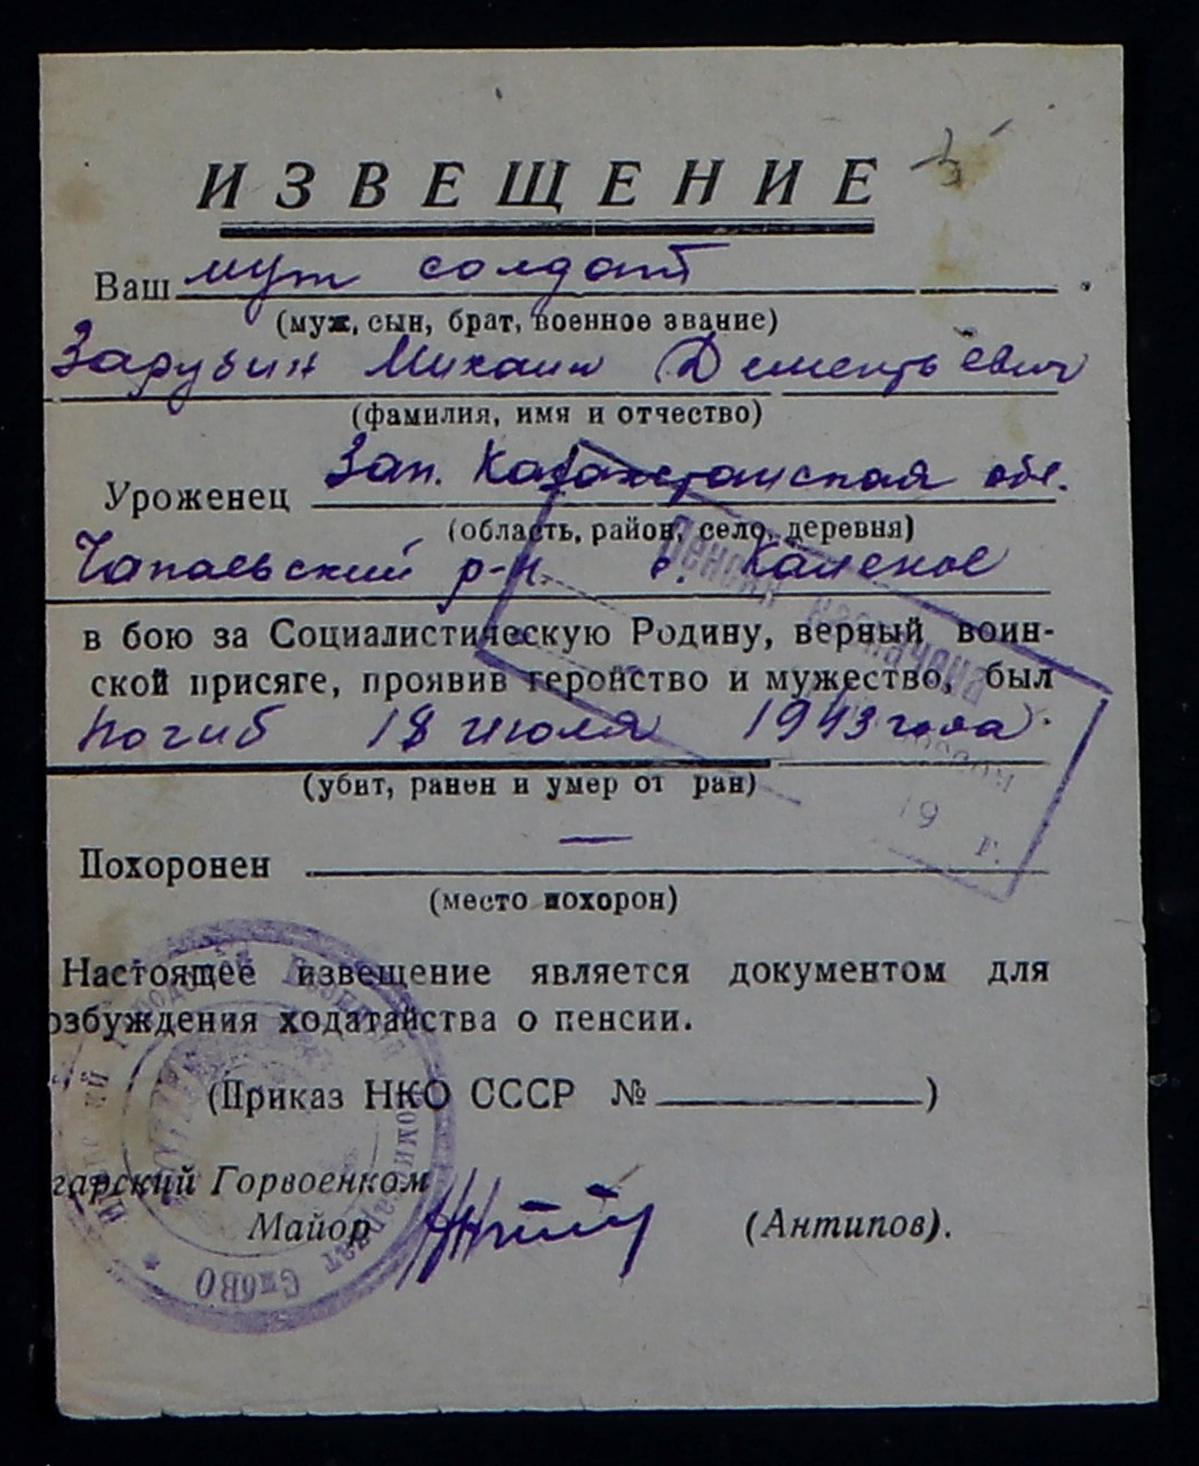 ИЗВЕЩЕНИЕ
Ваш муж солдат
(муж, сын, брат, военное звание)
Зарубин Михаил Дементьевич
(фамилия, имя и отчество)
Уроженец Зап. Казахстанская обл.
(область, район, село, деревня)
Чапаевский р-н. с. Каленое
в бою за Социалистическую Родину, верный воин-
ской присяге, проявив геройство и мужество, был
погиб 18 июля 1943 года
(убит, ранен и умер от ран)
Пенсия назначена
19 г.
Похоронен —
(место похорон)
Настоящее извещение является документом для
озбуждения ходатайства о пенсии.
(Приказ НКО СССР № )
гарский Горвоенком
Майор (Антипов).
Городской Военный Комиссариат СибВО